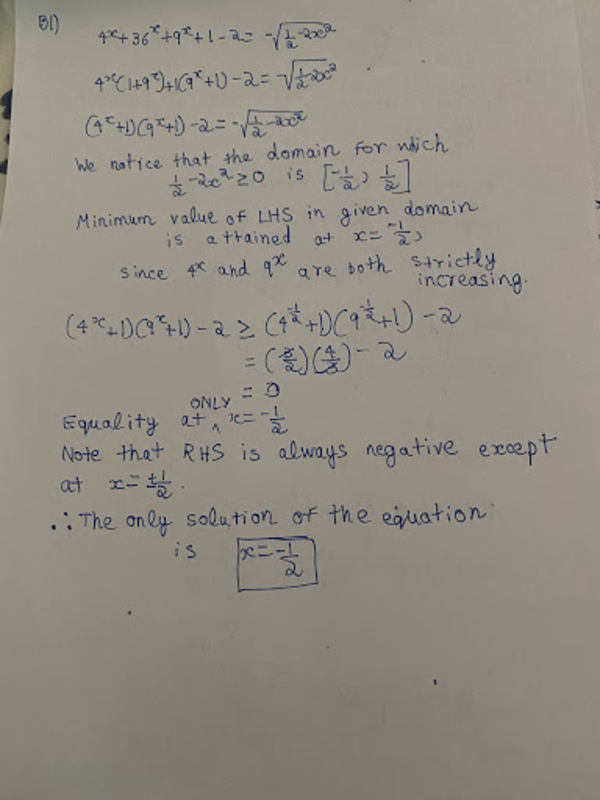 B1)
4^x + 36^x + 9^x + 1 - 2 = -√(1/2 - 2x²)
4^x(1+9^x) + 1(9^x+1) - 2 = -√(1/2 - 2x²)
(4^x+1)(9^x+1) - 2 = -√(1/2 - 2x²)
We notice that the domain for which
1/2 - 2x² ≥ 0 is [-1/2, 1/2]
Minimum value of LHS in given domain
is attained at x = -1/2,
since 4^x and 9^x are both strictly
increasing.
(4^x+1)(9^x+1) - 2 ≥ (4^(-1/2)+1)(9^(-1/2)+1) - 2
= (3/2)(4/3) - 2
= 0
Equality at ONLY x = -1/2
Note that RHS is always negative except
at x = ±1/2.
∴ The only solution of the equation
is x = -1/2